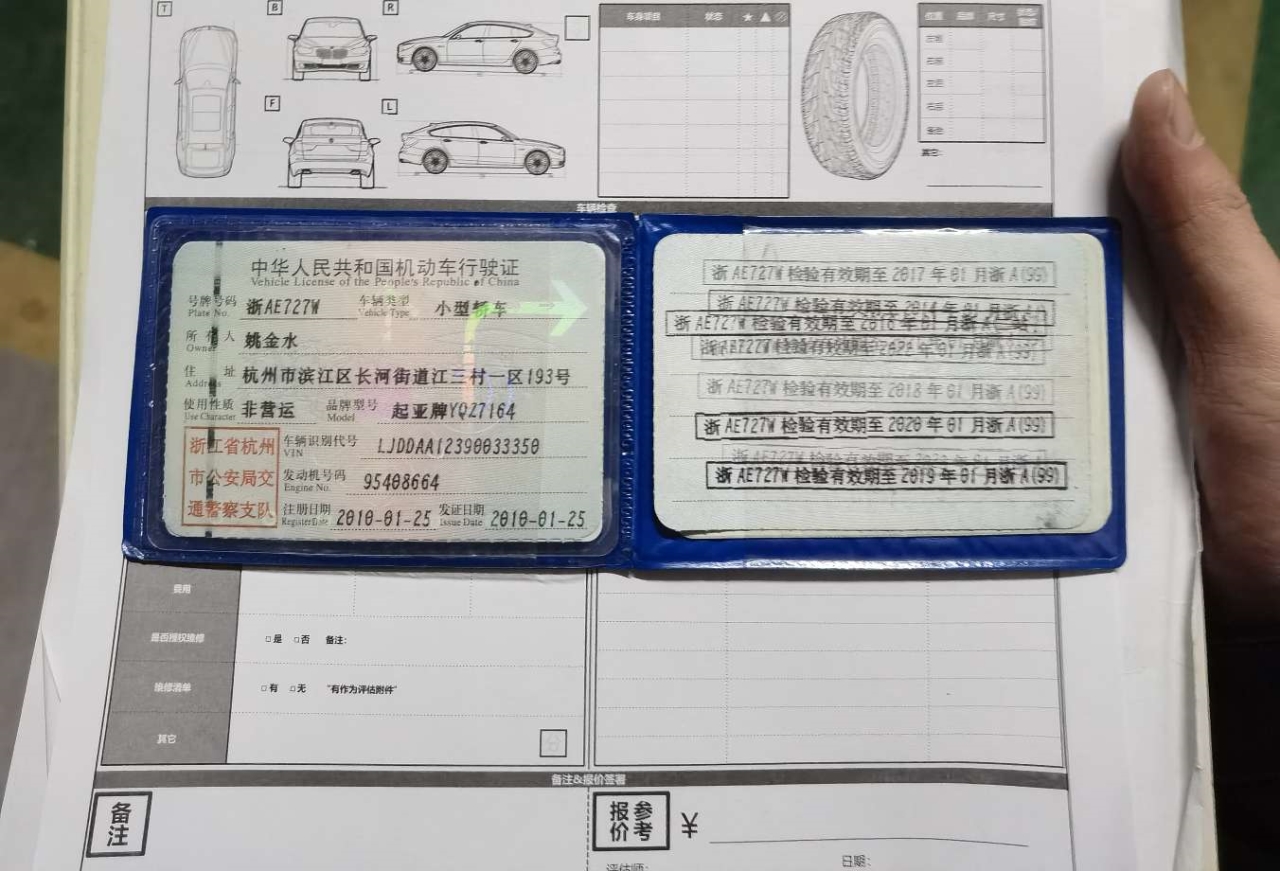 T
B
R
车身项目 状态 ★ ▲
位置 品牌 尺寸
左前
右前
左后
右后
备胎
其它:
F
L
车辆检查
中华人民共和国机动车行驶证
Vehicle License of the People's Republic of China
号牌号码 浙AE727W 车辆类型 小型轿车
Plate No. Vehicle Type
所有人 姚金水
Owner
住址 杭州市滨江区长河街道江三村一区193号
Address
使用性质 非营运 品牌型号 起亚牌YQZ7164
Use Character Model
浙江省杭州
市公安局交
通警察支队
车辆识别代号 LJDDAA12390033350
VIN
发动机号码 95408664
Engine No.
注册日期 2010-01-25 发证日期 2010-01-25
Register Date Issue Date
浙AE727W 检验有效期至 2017 年 01 月浙A(99)
浙AE727W 检验有效期至 2014 年 01 月浙A
浙AE727W 检验有效期至 2016 年 01 月浙A
浙AE727W 检验有效期至 2018 年 01 月浙A(99)
浙AE727W 检验有效期至 2020 年 01 月浙A(99)
浙AE727W 检验有效期至 2019 年 01 月浙A(99)
费用
是否授权维修 □是 □否 备注:
维修清单 □有 □无 "有作为评估附件"
其它
备注&报价签署
备注
参考报价 ¥
评估师: 日期: